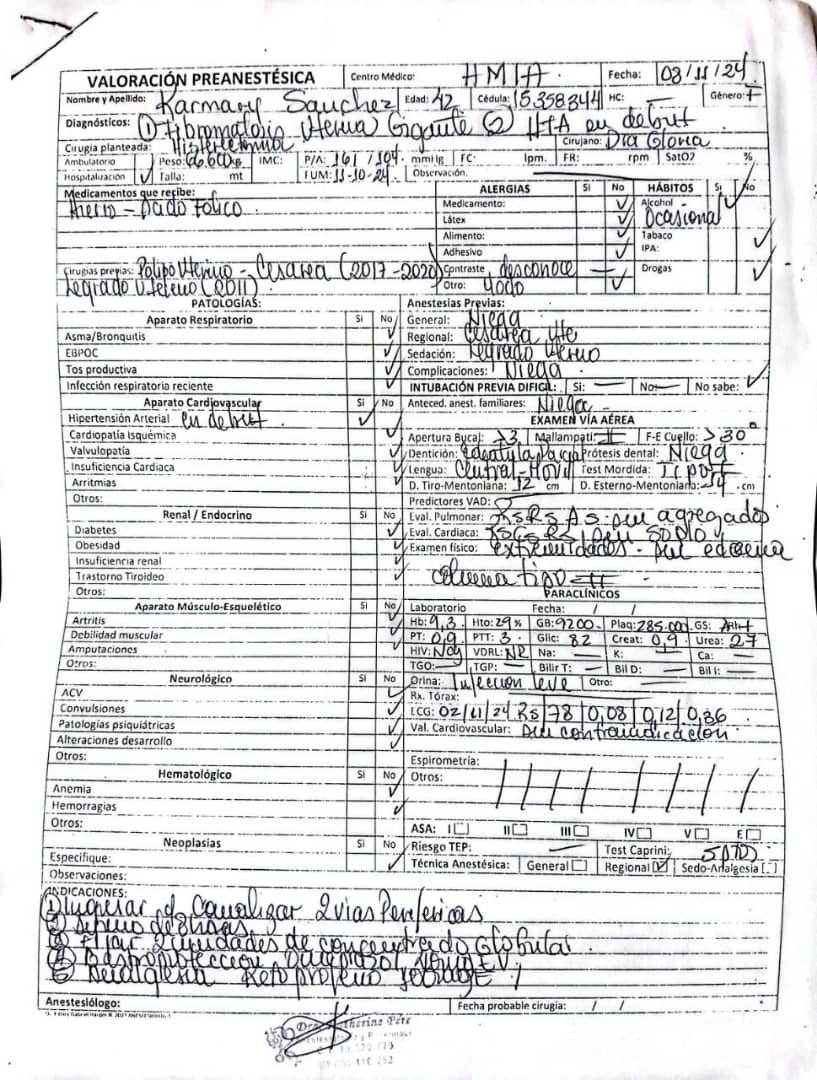 VALORACIÓN PREANESTÉSICA Centro Médico: HMIA. Fecha: 03/11/24
Nombre y Apellido: Karmary Sanchez Edad: 42 Cédula: 15358344 HC: Género: F
Diagnósticos: ① Fibromatosis Uterina Gigante ② HTA en debut
Cirugía planteada: Histerectomía Cirujano: Dra Gloria
Ambulatorio Peso: 66.600kg IMC: P/A: 161 / 104. mmHg FC: lpm. FR: rpm SatO2 %
Hospitalización ✓ Talla: mt FUM: 11-10-24. Observación.
Medicamentos que recibe: ALERGIAS Si No HÁBITOS Si No
Hierro - Acido Folico. Medicamento: ✓ Alcohol ✓
Látex ✓ Ocasional
Alimento: ✓ Tabaco ✓
Adhesivo ✓ IPA:
Cirugías previas: Polipo Uterino - Cesarea (2017-2020) Contraste desconoce — Drogas ✓
Legrado Uterino (2011) Otro: Yodo ✓
PATOLOGÍAS: Anestesias Previas:
Aparato Respiratorio Si No General: Niega
Asma/Bronquitis ✓ Regional: Cesarea
EBPOC ✓ Sedación: Legrado Uterino
Tos productiva ✓ Complicaciones: Niega
Infección respiratoria reciente ✓ INTUBACIÓN PREVIA DIFICIL: Si: — No: — No sabe: ✓
Aparato Cardiovascular Si No Anteced. anest. familiares: Niega
Hipertensión Arterial en debut ✓ EXAMEN VÍA AÉREA
Cardiopatía Isquémica ✓ Apertura Bucal: >3 Mallampati: II F-E Cuello: >30°
Valvulopatía ✓ Dentición: Prótesis dental: Niega.
Insuficiencia Cardiaca ✓ Lengua: Central-Movil Test Mordida: Tipo II
Arritmias ✓ D. Tiro-Mentoniana: 12 cm D. Esterno-Mentoniana: 14 .cm
Otros: Predictores VAD:
Renal / Endocrino Si No Eval. Pulmonar: RsRs As sin agregados
Diabetes ✓ Eval. Cardiaca: RsCsRs sin soplo
Obesidad ✓ Examen físico: extremidades - sin edema
Insuficiencia renal ✓
Trastorno Tiroideo ✓ columna tipo II
Otros: PARACLÍNICOS
Aparato Músculo-Esquelético Si No Laboratorio Fecha: / /
Artritis ✓ Hb: 9,3. Hto: 29% GB: 9200. Plaq: 285.000. GS: ARH+
Debilidad muscular ✓ PT: 0,9 PTT: 3. Glic: 82 Creat: 0,9 Urea: 27
Amputaciones ✓ HIV: Neg VDRL: NR Na: — K: — Ca: —
Otros: TGO: — TGP: — Bilir T: — Bil D: — Bil I: —
Neurológico Si No Orina: Infeccion leve Otro:
ACV ✓ Rx. Tórax:
Convulsiones ✓ ECG: 02/11/24 Rs/78/0,08/0,12/0,36
Patologías psiquiátricas ✓ Val. Cardiovascular: Sin contraindicacion.
Alteraciones desarrollo ✓
Otros: Espirometría:
Hematológico Si No Otros:
Anemia ✓
Hemorragias ✓
Otros: ASA: I II III IV V E
Neoplasias Si No Riesgo TEP: — Test Caprini: 5PTOS
Especifique: ✓ Técnica Anestésica: General Regional ✓ Sedo-Analgesia
Observaciones:
INDICACIONES:
① Ingresar y Canalizar 2 vias Perifericas
② Ayuno de 8 horas
③ Fijar 2 unidades de concentrado Globular.
④ Gastroproteccion Omeprazol 40mg EV
⑤ Analgesia Ketoprofeno
Anestesiólogo: Fecha probable cirugía: / /